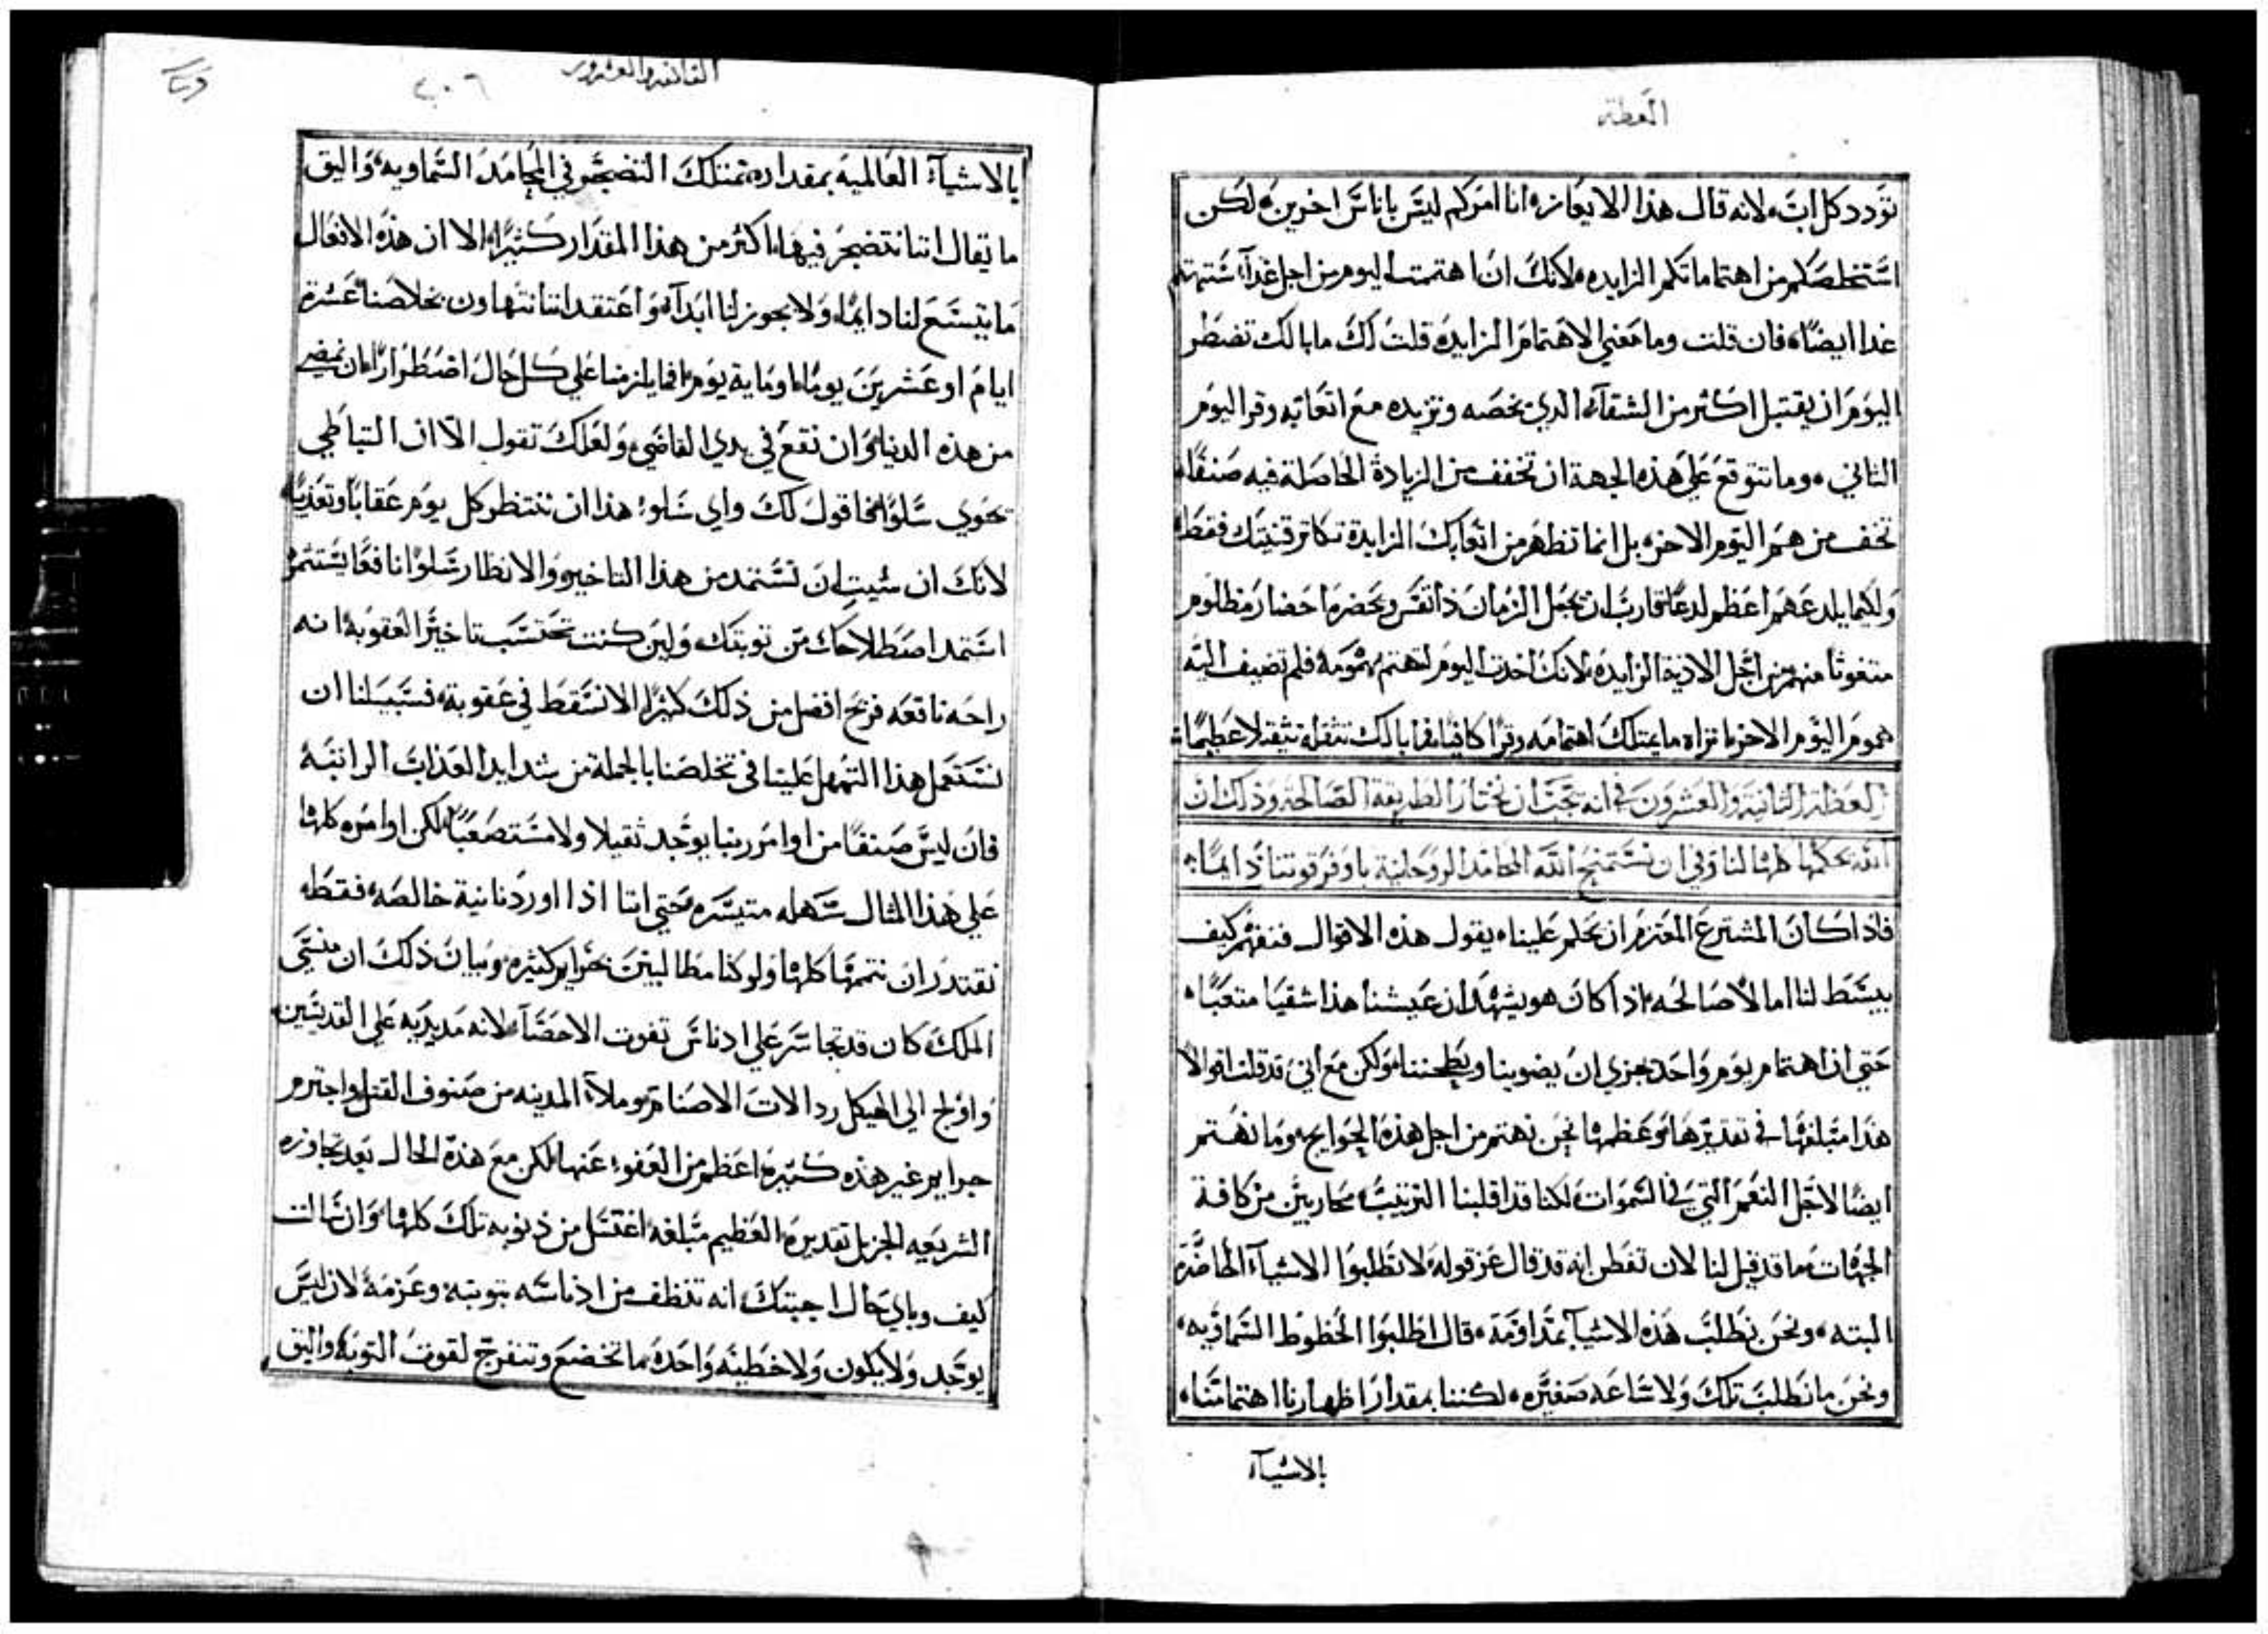 العظة
تودد كل اب، لانه قال هذا الايعازه انا امركم ليس باناس اخرين، لكن
استخلصكم من اهتماماتكم الزايده، لانك ان اهتممت اليوم من اجل غدآ، ستهتم
غدا ايضًا، فان قلت وما معني الاهتمام الزايده قلت لك ما بالك تضطر
اليوم ان يقتبل اكثر من الشقآء الذي يخصه وتزيده مع اتعابه وقر اليوم
الثاني، وما تتوقع علي هذه الجهة ان تخفف من الزيادة الحاصلة فيه صنفًا
تخف من هم اليوم الاخر، بل انما تظهر من اتعابك الزايدة تكاثر قنيتك فقط،
ولكيما يلدعهم اعظم لدعًا قارب ان يجعل الزمان ذا نفس ويحضره احضار مظلوم
متغوثا منهم من اجل الاذية الزايده، لانك اخدت اليوم لتهتم بهمومه فلم تضيف اليه
هموم اليوم الاخر ما تراه ما يمتلك اهتمامه وقرًا كافيا، فما بالك تثقله تثقيلا عظيمًا،
العظة الثانية والعشرون في انه يجب ان نختار الطريقة الصالحة وذلك ان
الله يحكمها كلها لنا وفي ان نستمنح الله المحامد الروحانية باوفر قوتنا دايمًا،
فاذا كان المشترع المعتزم ان يحكم علينا، يقول هذه الاقوال فنفهم كيف
يبسط لنا امالا صالحه، اذا كان هو يشهد ان عيشنا هذا شقيا متعبًا،
حتي ان اهتمام يوم واحد يجزي ان يضوينا ويطحننا، ولكن مع اني قد قلت اقوالا
هذا مبلغها في تقديرها وعظمها نحن نهتم من اجل هذه الحوايج، وما نهتم
ايضًا لاجل النعم التي في السموات، لكنا قد اقلبنا الترتيب، محاربين من كافة
الجهات ما قد قيل لنا لان تفطن انه قد قال عز قوله لا تطلبوا الاشيآء الحاضره
البته، ونحن نطلب هذه الاشيآ بمداومة، قال اطلبوا الحظوظ السماويه،
ونحن ما نطلب تلك ولا ساعه صغيره، لكننا بمقدار اظهارنا اهتمامنا،
بالاشيآء
الثانيه والعشرون
٢٠٦
بالاشيآء العالميه بمقداره نمتلك التضجر في المحامد السماويه، واليق
ما يقال اننا نتضجر فيها، اكثر من هذا المقدار كثيرًا، الا ان هذه الافعال
ما يتسع لنا دايمًا، ولا يجوز لنا ابدآء واعتقد اننا نتهاون بخلاصنا عشرة
ايام او عشرين يومًا، او ماية يوم، افما يلزمنا علي كل حال اضطرارًا، ان نمضي
من هذه الدنيا، وان نقع في يدي القاضي، ولعلك تقول الا ان التباطي
يحوي سلوًا، فاقول لك واي سلو، هذا ان ننتظر كل يوم عقابًا وتعذيبًا،
لانك ان شيت ان تستمد من هذا التاخير والانظار سلوًا نافعًا يستثمر
استمد اصطلاحك من توبتك، ولين كنت تحتسب تاخير العقوبة انه
راحه نافعه فربح افضل من ذلك كثيرًا الا نسقط في عقوبة، فسبيلنا ان
نستعمل هذا التمهل علينا في تخلصنا بالجملة من شدايد العذاب الراتبه
فان ليس صنفًا من اوامر ربنا يوجد ثقيلا ولا مستصعبًا، لكن اوامره كلها
علي هذا المثال سهله متيسره حتي اننا اذا اوردنا نية خالصه، فقط،
نقتدر ان نتممها كلها ولو كنا مطالبين بجراير كثيره، وبيان ذلك ان منسي
الملك كان قد تجاسر علي ادناس تفوت الاحصآء، لانه مد يديه علي القديسين،
واولج الي الهيكل ردالات الاصنام، وملآء المدينه من صنوف القتل، واجترم
جراير غير هذه كثيره، اعظم من العفو، عنها، لكن مع هذه الحال بعد تجاوزه
الشريعه الجزيل تقديره، العظيم مبلغه، اغتسل من ذنوبه تلك كلها، وان سالت
كيف وباي حال اجبتك، انه تنظف من ادناسه بتوبته، وعزمه لان ليس
يوجد ولا يكون ولا خطيه واحدة، ما تخضع وتنفرج لقوت التوبه، واليق